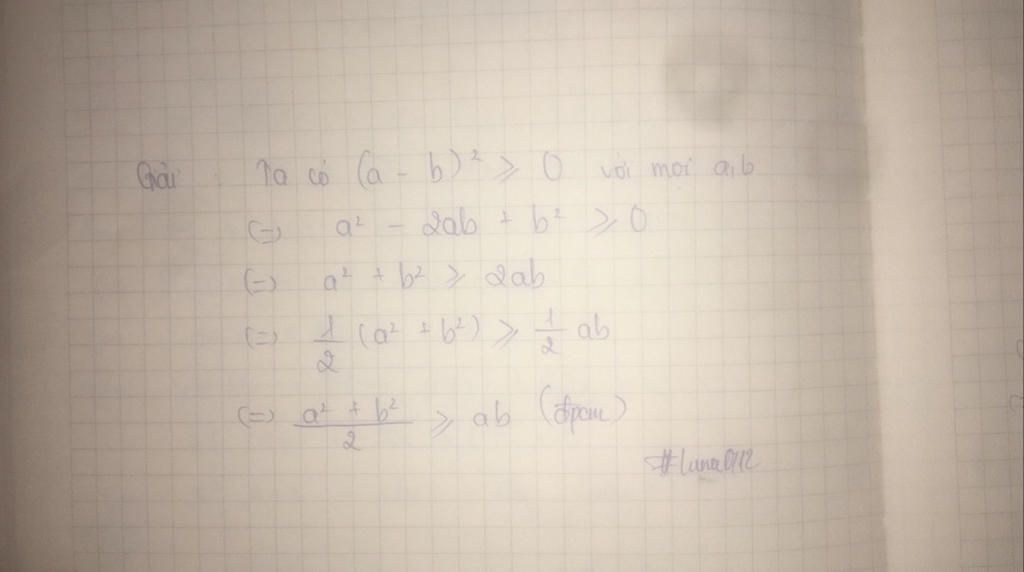 Giải : Ta có (a - b)² ≥ 0 với mọi a,b
(=) a² - 2ab + b² ≥ 0
(=) a² + b² ≥ 2ab
(=) 1/2 (a² + b²) ≥ 1/2 ab
(=) (a² + b²)/2 ≥ ab (đpcm)
#luna0112